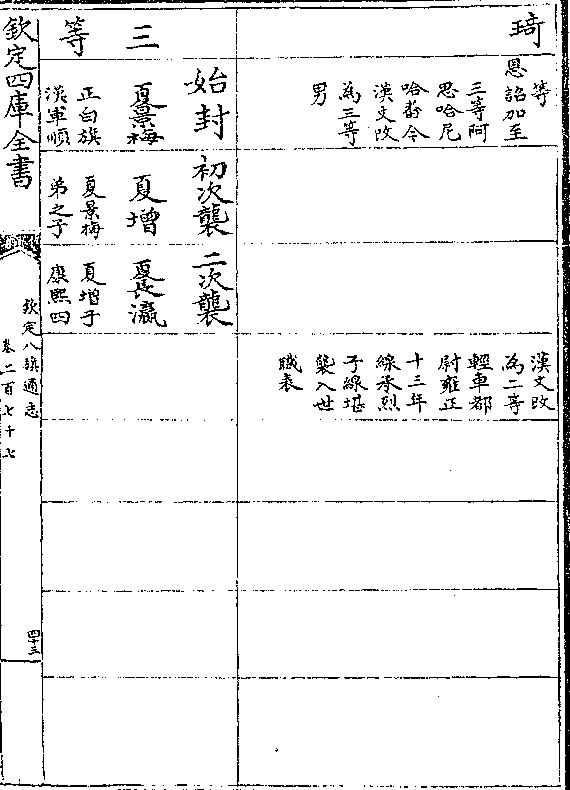 琦
等
恩詔加至
三等阿
思哈尼
哈番今
漢文改
為三等
男
漢文改
為二等
輕車都
尉雍正
十三年
線承烈
子線堪
襲入世
職表
三等
始封
夏景梅
正白旗
漢軍順
初次襲
夏增
夏景梅
弟之子
二次襲
夏長瀛
夏增子
康熙四
欽定四庫全書
欽定八旗通志
卷二百七十七
四十三